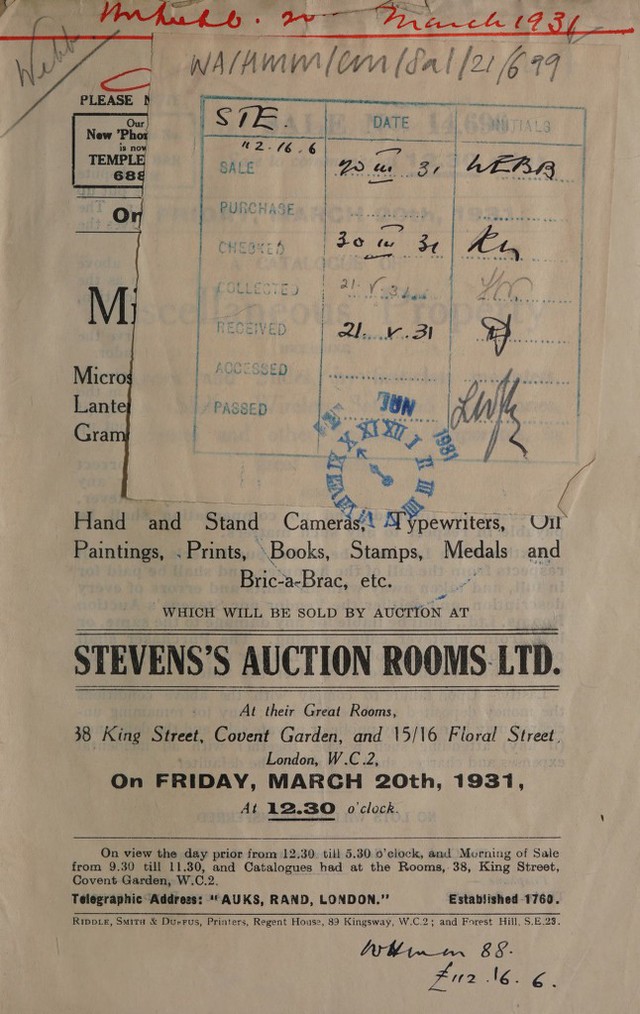 20 March 1931
Webb
WA/Hmm/cm/Sal/21/699
PLEASE N
Our
New 'Pho
is now
TEMPLE
688
On
STE. DATE INITIALS
112.16.6
SALE 20 iii 31 WEBB
PURCHASE
CHECKED 30 iii 31
COLLECTED 21. V. 31
RECEIVED 21. V. 31
ACCESSED
PASSED
JUN 1931
Mi
Micros
Lante
Gram
Hand and Stand Cameras, Typewriters, Oil
Paintings, Prints, Books, Stamps, Medals and
Bric-a-Brac, etc.
WHICH WILL BE SOLD BY AUCTION AT
STEVENS'S AUCTION ROOMS LTD.
At their Great Rooms,
38 King Street, Covent Garden, and 15/16 Floral Street,
London, W.C.2,
On FRIDAY, MARCH 20th, 1931,
At 12.30 o'clock.
On view the day prior from 12.30 till 5.30 o'clock, and Morning of Sale
from 9.30 till 11.30, and Catalogues had at the Rooms, 38, King Street,
Covent Garden, W.C.2.
Telegraphic Address: "AUKS, RAND, LONDON." Established 1760.
RIDDLE, SMITH & DUFFUS, Printers, Regent House, 89 Kingsway, W.C.2; and Forest Hill, S.E.23.
88.
£112.16.6.